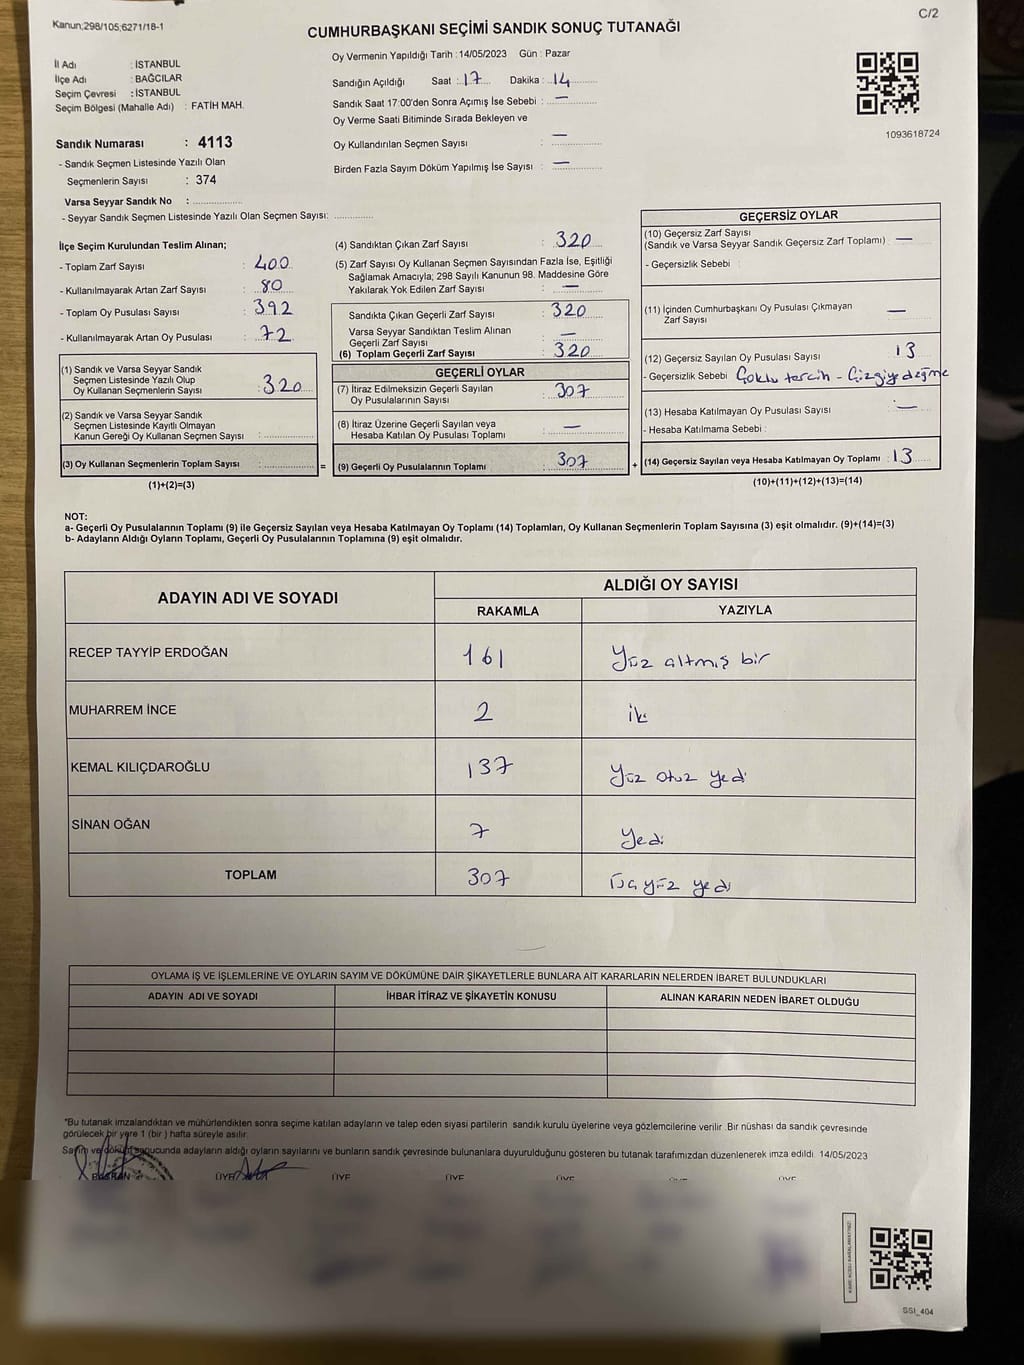 Kanun;298/105;6271/18-1
C/2
CUMHURBAŞKANI SEÇİMİ SANDIK SONUÇ TUTANAĞI
İl Adı : İSTANBUL
İlçe Adı : BAĞCILAR
Seçim Çevresi : İSTANBUL
Seçim Bölgesi (Mahalle Adı) : FATİH MAH.
Sandık Numarası : 4113
- Sandık Seçmen Listesinde Yazılı Olan
Seçmenlerin Sayısı : 374
Varsa Seyyar Sandık No :
- Seyyar Sandık Seçmen Listesinde Yazılı Olan Seçmen Sayısı:
Oy Vermenin Yapıldığı Tarih : 14/05/2023 Gün : Pazar
Sandığın Açıldığı Saat : 17 Dakika : 14
Sandık Saat 17:00'den Sonra Açımış İse Sebebi : —
Oy Verme Saati Bitiminde Sırada Bekleyen ve
Oy Kullandırılan Seçmen Sayısı : —
Birden Fazla Sayım Döküm Yapılmış İse Sayısı : —
1093618724
İlçe Seçim Kurulundan Teslim Alınan;
- Toplam Zarf Sayısı : 400
- Kullanılmayarak Artan Zarf Sayısı : 80
- Toplam Oy Pusulası Sayısı : 392
- Kullanılmayarak Artan Oy Pusulası : 72
(1) Sandık ve Varsa Seyyar Sandık
Seçmen Listesinde Yazılı Olup
Oy Kullanan Seçmenlerin Sayısı : 320
(2) Sandık ve Varsa Seyyar Sandık
Seçmen Listesinde Kayıtlı Olmayan
Kanun Gereği Oy Kullanan Seçmen Sayısı :
(3) Oy Kullanan Seçmenlerin Toplam Sayısı :
(1)+(2)=(3)
=
(4) Sandıktan Çıkan Zarf Sayısı : 320
(5) Zarf Sayısı Oy Kullanan Seçmen Sayısından Fazla İse, Eşitliği
Sağlamak Amacıyla; 298 Sayılı Kanunun 98. Maddesine Göre
Yakılarak Yok Edilen Zarf Sayısı : —
Sandıkta Çıkan Geçerli Zarf Sayısı : 320
Varsa Seyyar Sandıktan Teslim Alınan
Geçerli Zarf Sayısı : —
(6) Toplam Geçerli Zarf Sayısı : 320
GEÇERLİ OYLAR
(7) İtiraz Edilmeksizin Geçerli Sayılan
Oy Pusulalarının Sayısı : 307
(8) İtiraz Üzerine Geçerli Sayılan veya
Hesaba Katılan Oy Pusulası Toplamı : —
(9) Geçerli Oy Pusulalarının Toplamı : 307
+
GEÇERSİZ OYLAR
(10) Geçersiz Zarf Sayısı
(Sandık ve Varsa Seyyar Sandık Geçersiz Zarf Toplamı) : —
- Geçersizlik Sebebi :
(11) İçinden Cumhurbaşkanı Oy Pusulası Çıkmayan
Zarf Sayısı —
(12) Geçersiz Sayılan Oy Pusulası Sayısı : 13
- Geçersizlik Sebebi Çoklu tercih - Çizgiye değme
(13) Hesaba Katılmayan Oy Pusulası Sayısı : —
- Hesaba Katılmama Sebebi :
(14) Geçersiz Sayılan veya Hesaba Katılmayan Oy Toplamı : 13
(10)+(11)+(12)+(13)=(14)
NOT:
a- Geçerli Oy Pusulalarının Toplamı (9) ile Geçersiz Sayılan veya Hesaba Katılmayan Oy Toplamı (14) Toplamları, Oy Kullanan Seçmenlerin Toplam Sayısına (3) eşit olmalıdır. (9)+(14)=(3)
b- Adayların Aldığı Oyların Toplamı, Geçerli Oy Pusulalarının Toplamına (9) eşit olmalıdır.
ADAYIN ADI VE SOYADI
ALDIĞI OY SAYISI
RAKAMLA YAZIYLA
RECEP TAYYİP ERDOĞAN 161 Yüz altmış bir
MUHARREM İNCE 2 iki
KEMAL KILIÇDAROĞLU 137 Yüz otuz yedi
SİNAN OĞAN 7 Yedi
TOPLAM 307 Üç yüz yedi
OYLAMA İŞ VE İŞLEMLERİNE VE OYLARIN SAYIM VE DÖKÜMÜNE DAİR ŞİKAYETLERLE BUNLARA AİT KARARLARIN NELERDEN İBARET BULUNDUKLARI
ADAYIN ADI VE SOYADI İHBAR İTİRAZ VE ŞİKAYETİN KONUSU ALINAN KARARIN NEDEN İBARET OLDUĞU
*Bu tutanak imzalandıktan ve mühürlendikten sonra seçime katılan adayların ve talep eden siyasi partilerin sandık kurulu üyelerine veya gözlemcilerine verilir. Bir nüshası da sandık çevresinde
görülecek bir yere 1 (bir ) hafta süreyle asılır.
Sayım ve döküm sonucunda adayların aldığı oyların sayılarını ve bunların sandık çevresinde bulunanlara duyurulduğunu gösteren bu tutanak tarafımızdan düzenlenerek imza edildi. 14/05/2023
BAŞKAN ÜYE ÜYE ÜYE ÜYE ÜYE ÜYE
SSI_404